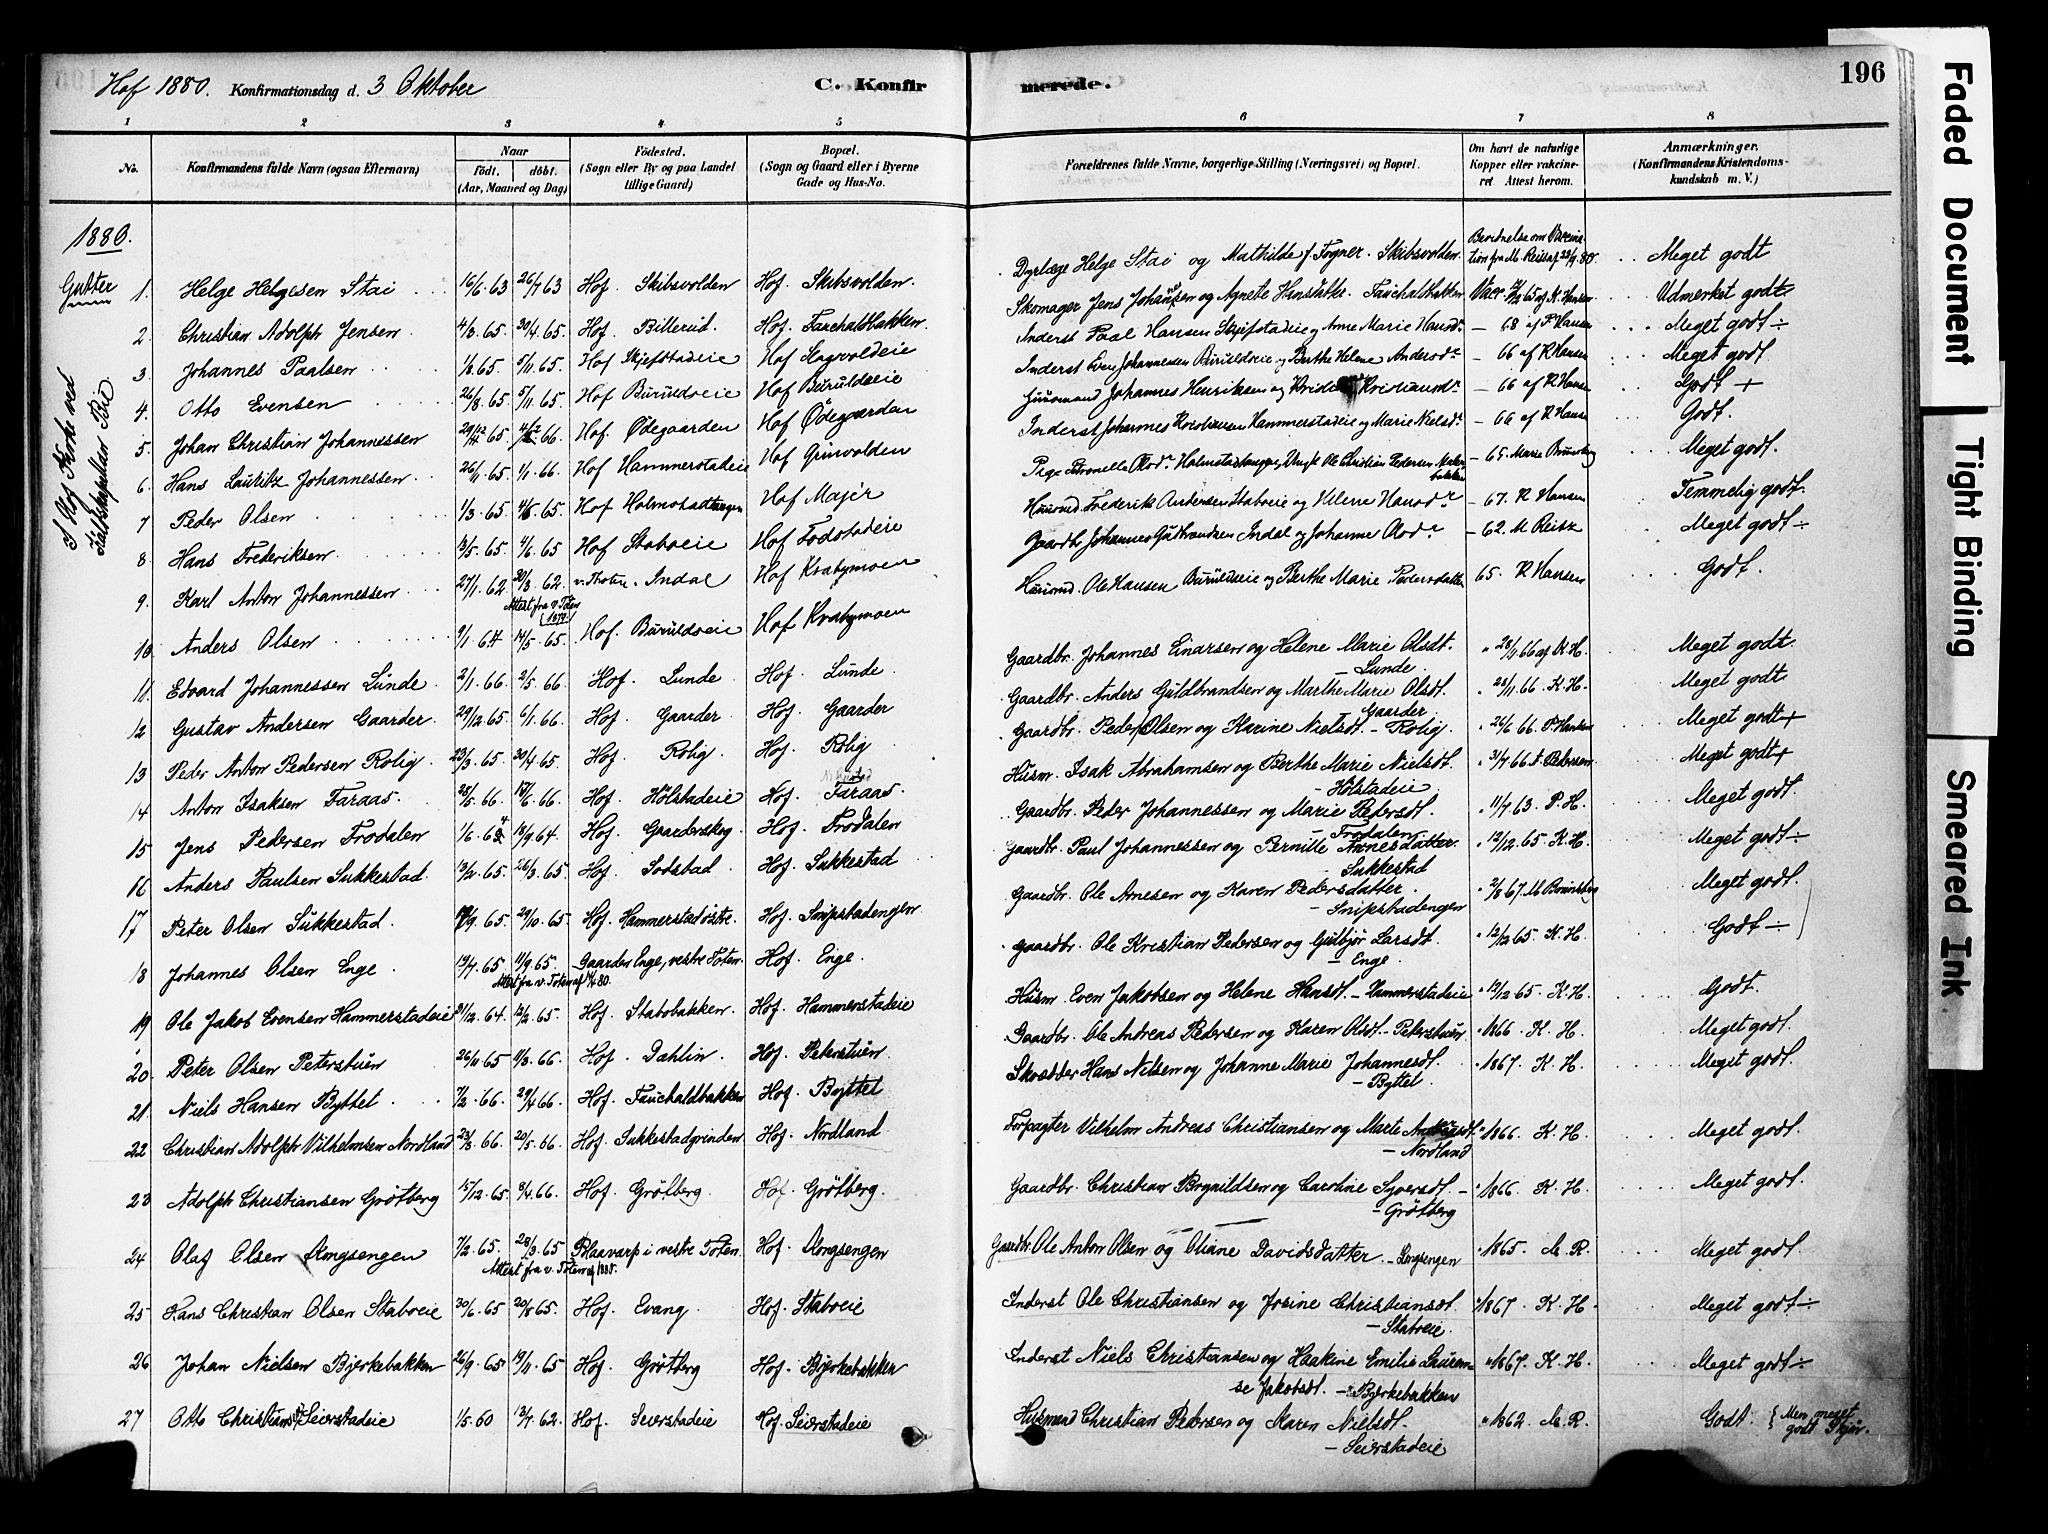 Hof 1880. Konfirmationsdag d. 3 Oktober
C. Konfir
merede.
196
1 2 3 4 5 6 7 8
No.
Konfirmandens fulde Navn (ogsaa Efternavn)
Naar
født. døbt.
(Aar, Maaned og Dag)
Fødested.
(Sogn eller By og paa Landet
tillige Gaard)
Bopæl.
(Sogn og Gaard eller i Byerne
Gade og Hus-No.
Forældrenes fulde Navne, borgerlige Stilling (Næringsvei) og Bopæl.
Om havt de naturlige
Kopper eller vakcine-
ret. Attest herom.
Anmærkninger.
(Konfirmandens Kristendoms-
kundskab m. V.)
1880.
Gutter
I Hof Kirke ved
1. Helge Helgesen Stai 16/6 63 26/7 63 Hof. Skibsvolden Hof. Skibsvolden. Dyrlæge Helge Stai og Mathilde f. Fogner. Skibsvolden Meget godt
2. Christian Adolph Jensen 4/3. 65. 30/4. 65. Hof. Billerud. Hof. Fauchaldbakken. Skomager Jens Johansen og Agnete Fauchaldbakken Udmerket godt
3. Johannes Paalsen 65. 5/11. 65. Hof Skjefstadeie Inderst Paal Hansen Skjefstadeie og Anne Marie Hansdr. – 68 af P Hansen Meget godt ÷
4. Otto Evensen 26/8. 65. 5/11. 65. Hof Buruldseie Hof Buruldseie Inderst Even Johannessen Buruldseie og Berthe Helene Andersdr – 66 af K Hansen Meget godt
5. Johan Christian Johannessen 65. 66. Hof. Ødegaarden Hof Ødegaarden Huusmand Johannes Henriksen og – 66 af K Hansen Godt +
6. Hans Lauritz Johannessen. 26/11. 65. 1/1. 66. Hof Hammerstadeie Hof Grinvolden Inderst Johannes Hammerstadeie og Marie Nielsdr. – 66 af K Hansen Godt.
7 Peder Olsen 1/3. 65. 65. Hof Holmstadtangen Hof Majer Pige Petronelle Olsdr. Ole Christian Pedersen – 65. Marie Brunsberg Meget godt.
8 Hans Frederiksen. 13/5. 65. 4/6. 65 Hof Staboeie Hof Fodstadeie Huusmd. Frederik Andersen Staboeie og Helene Hansdr – 67. K Hansen Temmelig godt.
9. Karl Anton Johannessen 27/1. 62. 30/3. 62. v. Thoten. Indal Hof Krabymoen Gaardbr. Johannes Gudbrandsen Indal og Johanne Olsdr – 62. M Reisz Meget godt ÷
Attest fra v. Toten
(1879.)
10. Anders Olsen 9/1 64 14/5. 65. Hof. Buruldseie Hof Krabymoen Huusmd. Ole Hansen Buruldseie og Berthe Marie Pedersdatter 65. K Hansen Godt.
11. Edvard Johannessen Lunde 2/1. 66. 2/5. 66. Hof. Lunde Hof. Lunde Gaardbr. Johannes Einarsen og Helene Marie Olsdt. " 28/11 66 af K. H. Meget godt.
– Lunde
12 Gustav Andersen Gaarder. 29/12. 65. 6/1. 66. Hof. Gaarder Hof. Gaarder Gaardbr. Anders Guldbrandsen og Marthe Marie Olsdt. " 28/11. 66. K. H. Meget godt
Gaarder
13 Peder Anton Pedersen Rolig 23/3. 65. 30/4. 65. Hof. Rolig Hof. Rolig Gaardbr. Peder Olsen og Karine Nielsdt. – Rolig. " 26/6 66. P. Hansen Meget godt +
14 Anton Isaksen Faraas. 28/5. 66. 17/6. 66. Hof. Hølstadeie Hof. Faraas. Husm. Isak Abrahamsen og Berthe Marie Nielsdt. " 31/7 66 A. Pedersen Meget godt +
– Hølstadeie.
15 Jens Pedersen Frodalen 1/6. 64 18/9 64. Hof. Gaarderskog Hof. Frodalen Gaardbr. Peder Johannessen og Marie Pedersdt. " 11/7 63. P. H. Meget godt.
– Frodalen.
16 Anders Paulsen Sukkestad. 13/2. 65. 26/3. 65. Hof. Sodstad Hof. Sukkestad Gaardbr. Paul Johannessen og Pernille Arnesdatter. " 12/12 65. K. H. Meget godt ÷
Sukkestad
17 Peter Olsen Sukkestad. 65. 29/10. 65. Hof. Hammerstadøstre. Hof. Snipstadengen Gaardbr. Ole Arnesen og Karen Pedersdatter. " 2/8 67. M. Brunsberg Meget godt.
– Snipstadengen
18 Johannes Olsen Enge. 19/7. 65 11/9 65. Gaarden Enge, vestre Toten. Hof. Enge. Gaardbr. Ole Kristian Pedersen og Gulbjør Larsdt. " 12/12 65. K. H. Godt ÷
– Enge.
Attest fra v. Toten
19 Ole Jakob Evensen Hammerstadeie 31/12. 64. 12/2. 65. Hof. Stabobakken. Hof. Hammerstadeie Husm. Even Jakobsen og Helene Hansdt. – Hammerstadeie " 12/12 65. K. H. Godt.
20 Peter Olsen Peterstuen 26/11 65 11/3. 66. Hof. Dahlin. Hof. Peterstuen. Gaardbr. Ole Andreas Pedersen og Karen Olsdt. – Peterstuen " 1866. K. H. Meget godt.
21. Niels Hansen Byttet 7/2. 66. 29/4 66. Hof. Fauchaldbakken Hof. Byttet Skrædder Hans Nilsen og Johanne Marie Johannesdt. " 1867. K. H. Meget godt.
– Byttet.
22 Christian Adolph Vilhelmsen Nordland 23/3. 66. 20/5. 66. Hof. Sukkestadgrinden Hof. Nordland Forpagter Vilhelm Andreas Christiansen og Marte " 1866. K. H. Meget godt.
– Nordland
23 Adolph Christiansen Grøtberg 15/12. 65. 8/4. 66. Hof. Grøtberg. Hof. Grøtberg. Gaardbr. Christian Brynildsen og Caroline Syversdt. – " 1866. K. H. Meget godt.
– Grøtberg
24 Olaf Olsen Longsengen 7/2. 65. 28/3. 65 Blaavarp i vestre Toten. Hof. Longsengen Gaardbr. Ole Anton Olsen og Oliane Davidsdatter. – Longsengen " 1865. M. R. Meget godt.
Attest fra v. Toten af 1880.
25 Hans Christian Olsen Staboeie 30/6. 65 20/8 65. Hof. Evang Hof. Staboeie Inderst Ole Christiansen og Josine Christiansdt. " 1867. K. H. Meget godt ÷
– Staboeie.
26 Johan Nielsen Bjerkebakken 26/9. 65 19/11. 65 Hof. Grøtberg Hof. Bjerkebakken Inderst Niels Christiansen og Haakine Emilie Lauren- " 1867. K. H. Meget godt ÷
se Jakobsdt. – Bjerkebakken
27 Otto Christians. Seierstadeie 1/5. 60 13/7. 62. Hof. Seierstadeie Hof. Seierstadeie Husmand Christian Pedersen og Karen Nielsdt. " 1862. M. R. Godt. { Men meget
– Seierstadeie godt Skjøn.
Faded Document
Tight Binding
Smeared Ink.